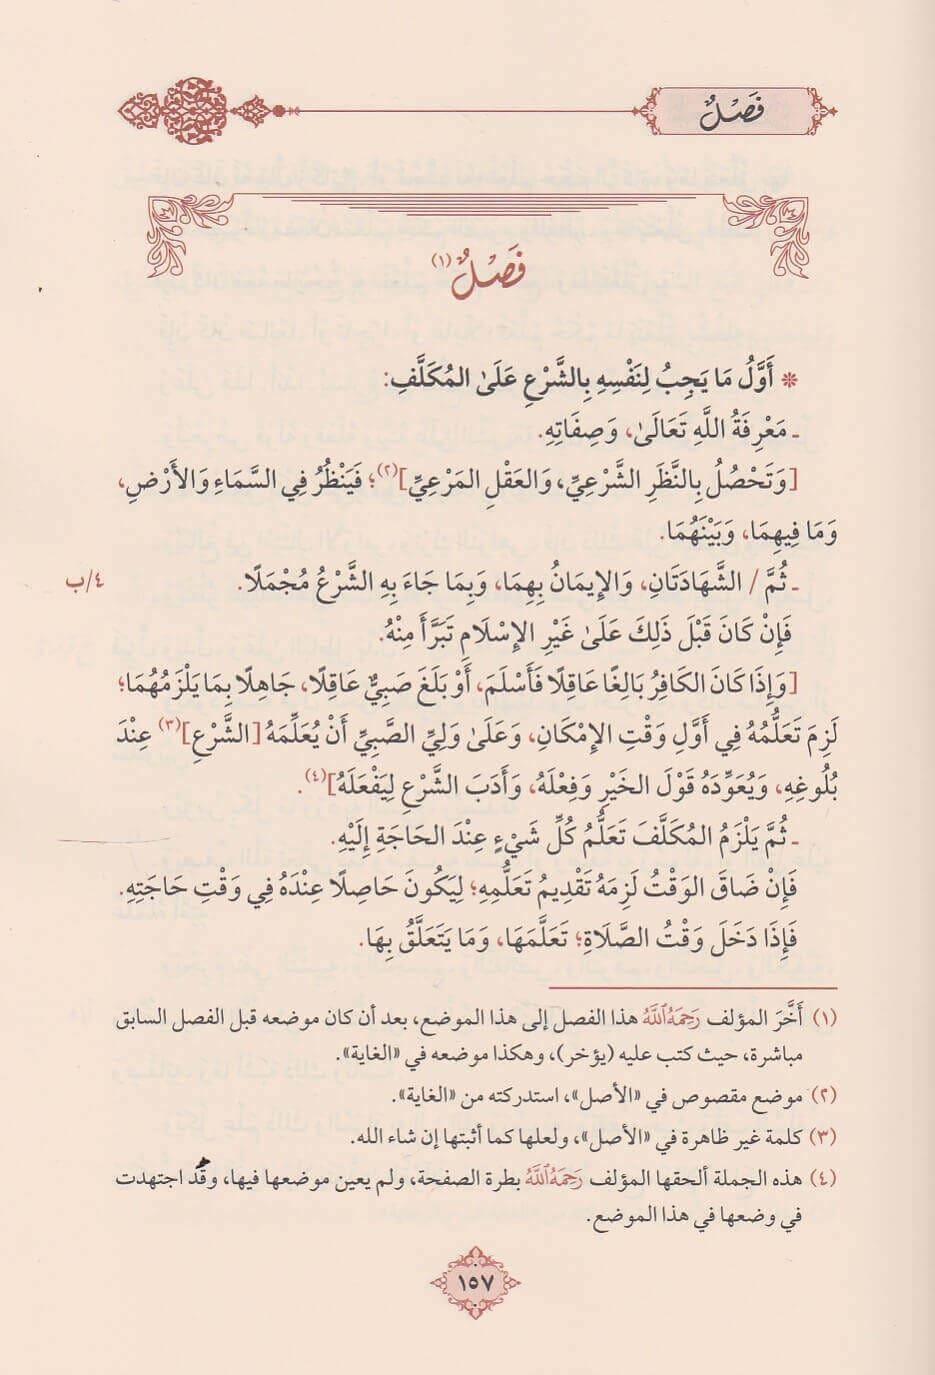 فَصْلٌ
فَصْلٌ (١)
* أَوَّلُ مَا يَجِبُ لِنَفْسِهِ بِالشَّرْعِ عَلَىٰ المُكَلَّفِ:
ـ مَعْرِفَةُ اللَّهِ تَعَالَىٰ، وَصِفَاتِهِ.
[وَتَحْصُلُ بِالنَّظَرِ الشَّرْعِيِّ، وَالعَقْلِ المَرْعِيِّ](٢)؛ فَيَنْظُرُ فِي السَّمَاءِ وَالأَرْضِ،
وَمَا فِيهِمَا، وَبَيْنَهُمَا.
ـ ثُمَّ / الشَّهَادَتَانِ، وَالإِيمَانُ بِهِمَا، وَبِمَا جَاءَ بِهِ الشَّرْعُ مُجْمَلًا. ٤/ب
فَإِنْ كَانَ قَبْلَ ذَلِكَ عَلَىٰ غَيْرِ الإِسْلَامِ تَبَرَّأَ مِنْهُ.
[وَإِذَا كَانَ الكَافِرُ بَالِغًا عَاقِلًا فَأَسْلَمَ، أَوْ بَلَغَ صَبِيٌّ عَاقِلًا، جَاهِلًا بِمَا يَلْزَمُهُمَا؛
لَزِمَ تَعَلُّمُهُ فِي أَوَّلِ وَقْتِ الإِمْكَانِ، وَعَلَىٰ وَلِيِّ الصَّبِيِّ أَنْ يُعَلِّمَهُ [الشَّرْعِ](٣) عِنْدَ
بُلُوغِهِ، وَيُعَوِّدَهُ قَوْلَ الخَيْرِ وَفِعْلَهُ، وَأَدَبَ الشَّرْعِ لِيَفْعَلَهُ](٤).
ـ ثُمَّ يَلْزَمُ المُكَلَّفَ تَعَلُّمُ كُلِّ شَيْءٍ عِنْدَ الحَاجَةِ إِلَيْهِ.
فَإِنْ ضَاقَ الوَقْتُ لَزِمَهُ تَقْدِيمُ تَعَلُّمِهِ؛ لِيَكُونَ حَاصِلًا عِنْدَهُ فِي وَقْتِ حَاجَتِهِ.
فَإِذَا دَخَلَ وَقْتُ الصَّلَاةِ؛ تَعَلَّمَهَا، وَمَا يَتَعَلَّقُ بِهَا.
(١) أَخَّرَ المؤلف رَحِمَهُ ٱللَّهُ هذا الفصل إلى هذا الموضع، بعد أن كان موضعه قبل الفصل السابق
مباشرة، حيث كتب عليه (يؤخر)، وهكذا موضعه في «الغاية».
(٢) موضع مقصوص في «الأصل»، استدركته من «الغاية».
(٣) كلمة غير ظاهرة في «الأصل»، ولعلها كما أثبتها إن شاء الله.
(٤) هذه الجملة ألحقها المؤلف رَحِمَهُ ٱللَّهُ بطرة الصفحة، ولم يعين موضعها فيها، وقد اجتهدت
في وضعها في هذا الموضع.
١٥٧